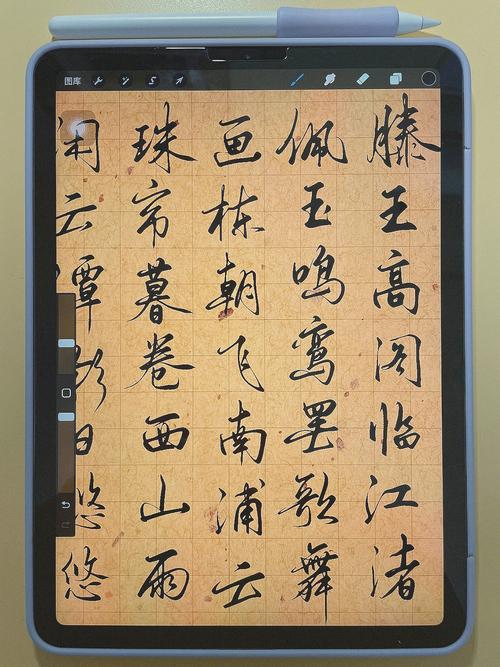 图库
滕王高阁临江渚
佩玉鸣鸾罢歌舞
画栋朝飞南浦云
珠帘暮卷西山雨
闲云潭影日悠悠